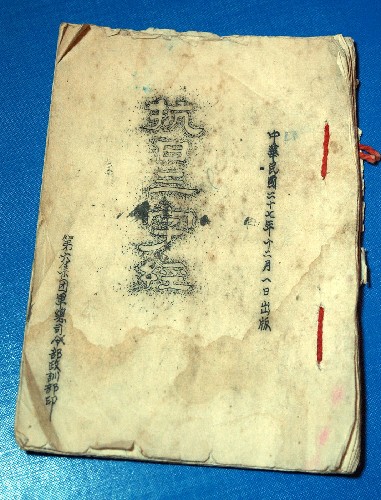 中華民國二十七年十二月一日出版
抗日三字經
第六集團軍總司令部政訓部印